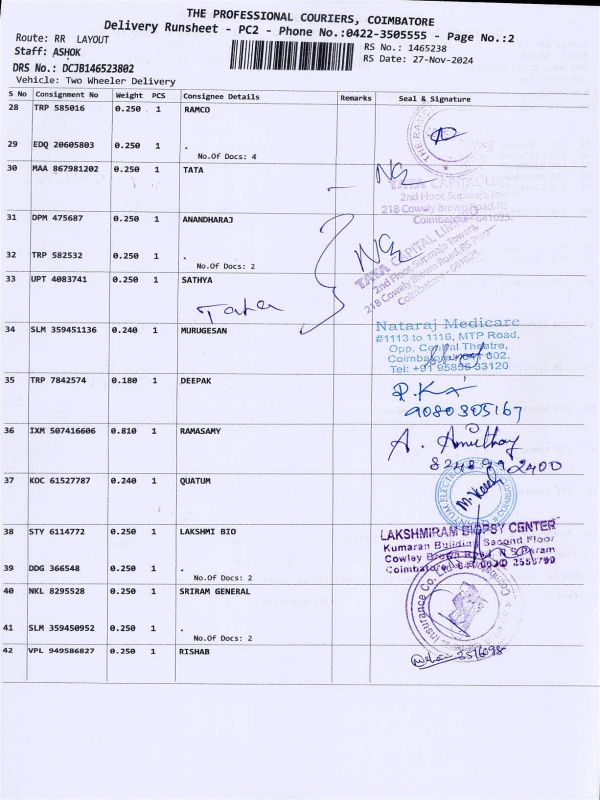 THE PROFESSIONAL COURIERS, COIMBATORE
Delivery Runsheet - PC2 - Phone No.:0422-3505555 - Page No.:2
Route: RR LAYOUT
Staff: ASHOK
RS No.: 1465238
RS Date: 27-Nov-2024
DRS No.: DCJB146523802
Vehicle: Two Wheeler Delivery
S No Consignment No Weight PCS Consignee Details Remarks Seal & Signature
28 TRP 585016 0.250 1 RAMCO
29 EDQ 20605803 0.250 1 .
No.Of Docs: 4
30 MAA 867981202 0.250 1 TATA
TATA CAPITAL LIMITED
2nd Floor, Supraja Towers,
218 Cowely Brown Road, RS
Coimbatore - 641025.
31 DPM 475687 0.250 1 ANANDHARAJ
32 TRP 582532 0.250 1 .
No.Of Docs: 2
TATA CAPITAL LIMITED
2nd Floor Supraja Towers,
218 Cowely Brown Road, RS
Coimbatore - 641025.
33 UPT 4083741 0.250 1 SATHYA
Tata
34 SLM 359451136 0.240 1 MURUGESAN
Nataraj Medicare
#1113 to 1116, MTP Road,
Opp. Central Theatre,
Coimbatore 002.
Tel: +91 95855 33120
35 TRP 7842574 0.180 1 DEEPAK
9080305167
36 IXM 507416606 0.810 1 RAMASAMY
A. Amuthay
8248992400
37 KOC 61527787 0.240 1 QUATUM
38 STY 6114772 0.250 1 LAKSHMI BIO
LAKSHMIRAM BIOPSY CENTER
Kumaran Building Second Floor
Cowley Brown Road R S Puram
Coimbatore
39 DDG 366548 0.250 1 .
No.Of Docs: 2
40 NKL 8295528 0.250 1 SRIRAM GENERAL
Insurance Co. Ltd
41 SLM 359450952 0.250 1 .
No.Of Docs: 2
42 VPL 949586827 0.250 1 RISHAB